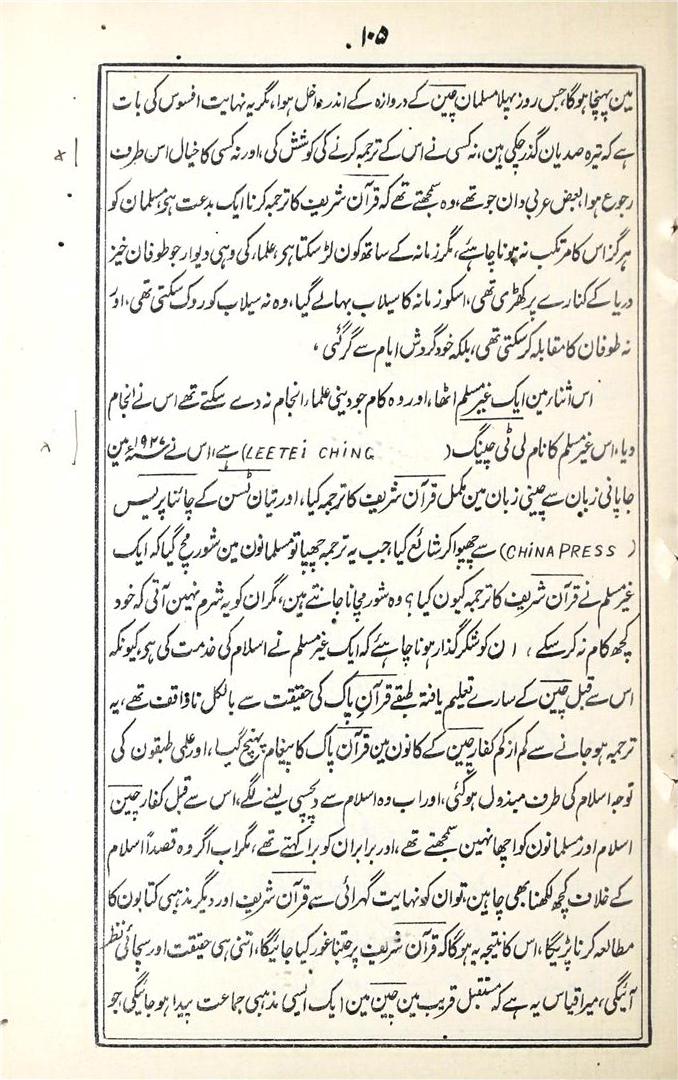 ۱۰۵
مین پہنچا ہوگا، جس روز پہلا مسلمان چین کے دروازہ کے اندر داخل ہوا، مگر یہ نہایت افسوس کی بات
ہے کہ تیرہ صدیان گذر چکی ہین، نہ کسی نے اس کے ترجمہ کرنے کی کوشش کی، اور نہ کسی کا خیال اس طرف
رجوع ہوا، بعض عربی دان جو تھے، وہ سمجھتے تھے کہ قرآن شریف کا ترجمہ کرنا ایک بدعت ہی، مسلمان کو
ہرگز اس کا مرتکب نہ ہونا چاہئے، مگر زمانہ کے ساتھ کون لڑ سکتا ہی، علماء کی وہی دیوار جو طوفان خیز
دریا کے کنارے پر کھڑی تھی، اسکو زمانہ کا سیلاب بہالے گیا، وہ نہ سیلاب کو روک سکتی تھی، اور
نہ طوفان کا مقابلہ کر سکتی تھی، بلکہ خود گردش ایام سے گر گئی،
اس اثنا مین ایک غیر مسلم اٹھا، اور وہ کام جو دینی علماء انجام نہ دے سکتے تھے اس نے انجام
دیا، اس غیر مسلم کا نام لی ٹی چینگ (LEETEI CHING) ہے، اس نے ۱۹۲۷ء مین
جاپانی زبان سے چینی زبان مین مکمل قرآن شریف کا ترجمہ کیا، اور تیان ٹسن کے چائنا پریس
(CHINA PRESS) سے چھپوا کر شائع کیا، جب یہ ترجمہ چھپا تو مسلمانون مین شور مچ گیا کہ ایک
غیر مسلم نے قرآن شریف کا ترجمہ کیون کیا؟ وہ شور مچانا جانتے ہین، مگر ان کو یہ شرم نہین آتی کہ خود
کچھ کام نہ کر سکے، ان کو شکر گذار ہونا چاہئے کہ ایک غیر مسلم نے اسلام کی خدمت کی ہی، کیونکہ
اس سے قبل چین کے سارے تعلیم یافتہ طبقے قرآنِ پاک کی حقیقت سے بالکل ناواقف تھے، یہ
ترجمہ ہو جانے سے کم از کم کفار چین کے کانون مین قرآن پاک کا پیغام پہنچ گیا، اور علمی طبقون کی
توجہ اسلام کی طرف مبذول ہوگئی، اور اب وہ اسلام سے دلچسپی لینے لگے، اس سے قبل کفار چین
اسلام اور مسلمانون کو اچھا نہین سمجھتے تھے، اور برابر ان کو برا کہتے تھے، مگر اب اگر وہ قصداً اسلام
کے خلاف کچھ لکھنا بھی چاہین، تو ان کو نہایت گہرائی سے قرآن شریف اور دیگر مذہبی کتابون کا
مطالعہ کرنا پڑیگا، اس کا نتیجہ یہ ہوگا کہ قرآن شریف پر جتنا غور کیا جائیگا، اتنی ہی حقیقت اور سچائی نظر
آئیگی، میرا قیاس یہ ہے کہ مستقبل قریب مین چین مین ایک ایسی مذہبی جماعت پیدا ہو جائیگی جو